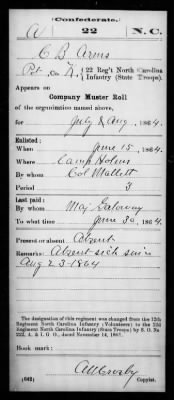 (Confederate.)
A 22 N.C.
C B Arms
Pvt, Co. K, 22 Reg't North Carolina
Infantry (State Troops).
Appears on
Company Muster Roll
of the organization named above,
for July & Aug, 1864
Enlisted:
When June 15, 1864
Where Camp Holmes
By whom Col Mallett
Period 3
Last paid:
By whom Maj Galoway
To what time June 30, 1864
Present or absent Absent
Remarks: Absent sick since
Aug 23 1864
The designation of this regiment was changed from the 12th
Regiment North Carolina Infantry (Volunteers) to the 22d
Regiment North Carolina Infantry (State Troops) by S. O. No.
222, A. & I. G. O., dated November 14, 1861.
Book mark:
(642) Copyist.